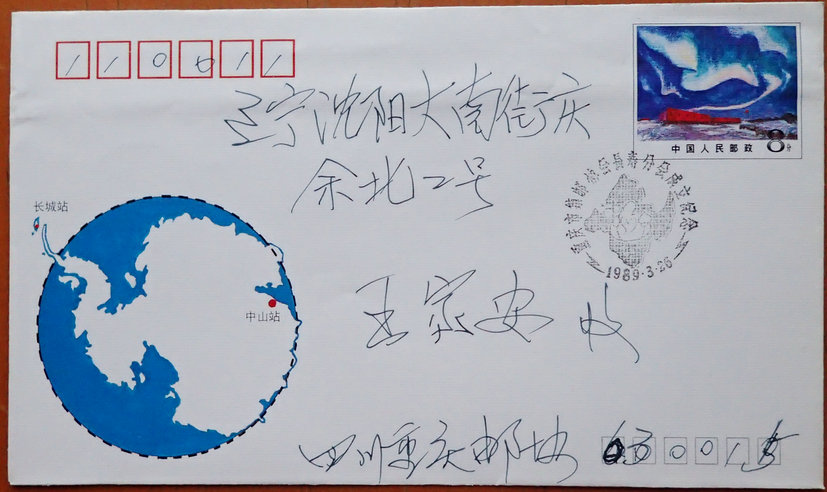 110011
中国人民邮政 8分
辽宁沈阳大南街庆
余北二号
重庆市集邮协会長寿分会成立纪念
1989.3.26
长城站
中山站
王家安 收
四川重庆邮协 630015